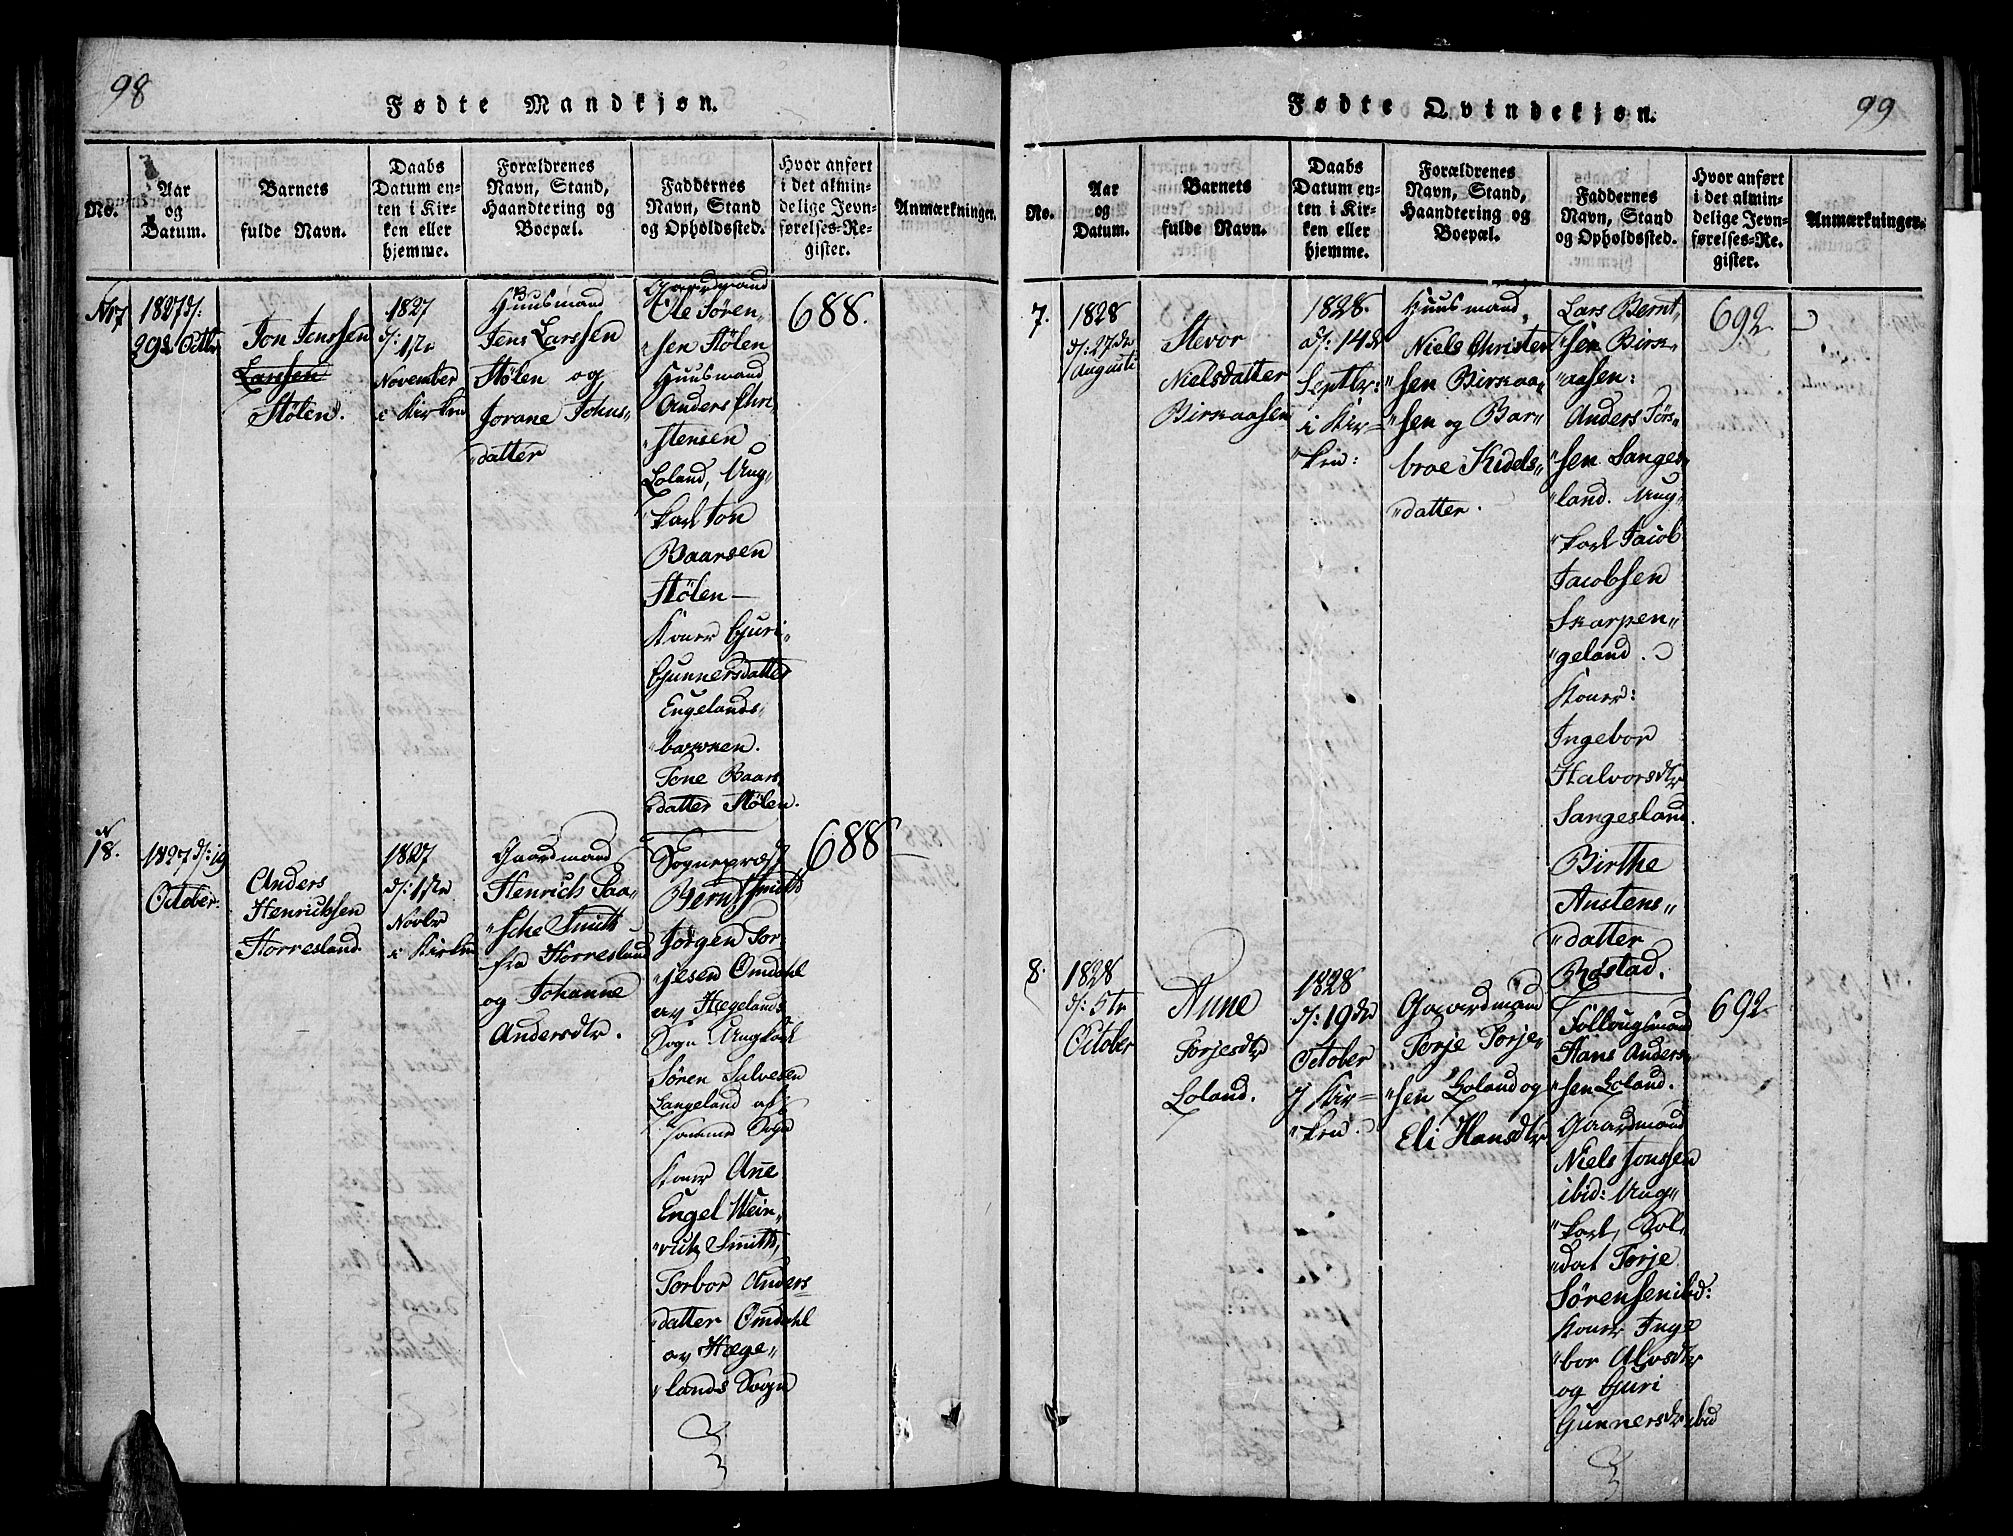 98
Fødte Mandkjøn.
No.
Aar
og
Datum.
Barnets
fulde Navn.
Daabs
Datum en-
ten i Kir-
ken eller
hjemme.
Forældrenes
Navn, Stand,
Haandtering og
Boepæl.
Faddernes
Navn, Stand
og Opholdssted.
Hvor anført
i det almin-
delige Jevn-
førelses-Re-
gister.
Anmærkninger.
1827 d:
29de Octbr
Jon Jenssen
Larssen
Stølen.
1827
d: 1ste
November
i Kirken
Huusmand
Jens Larssen
Stølen og
Jorane Johns-
"datter
Gaardmand
Ole Søren-
"sen Stølen
Huusmand
Anders Chri-
"stensen
Loland, Ung-
"karl Jon
Baarsen
Stølen—
Koner Guri
Gunnersdatter
Engelands-
"bakken.
Tone Baars
"datter Stølen.
688.
18.
1827 d: 19
October.
Anders
Henrichsen
Horresland.
1827
d: 1ste
Novbr
i Kirken
Gaardmand
Henrich Paa-
"sche Smith
fra Horresland
og Johanne
Andersdtr.
Sognepræst
Bernt Smith
Jørgen Tor-
"jesen Omdahl
av Hægelands
Sogn Ungkarl
Søren Salvesen
Langeland af
samme Sogn
Koner Ane
Engel Wein-
"rich Smith,
Torbor Anders
"datter Omdahl
av Hæge-
"lands Sogn
688
99
Fødte Qvindekjøn.
No.
Aar
og
Datum.
Barnets
fulde Navn.
Daabs
Datum en-
ten i Kir-
ken eller
hjemme.
Forældrenes
Navn, Stand,
Haandtering og
Boepæl.
Faddernes
Navn, Stand
og Opholdssted.
Hvor anført
i det almin-
delige Jevn-
førelses-Re-
gister.
Anmærkninger.
7.
1828
d: 27de
Augusti
Stevor
Nielsdatter
Birkaasen
1828.
d: 14de
Septbr:
i Kir-
"ken:
Huusmand,
Niels Christen
"sen Birkaa-
"sen og Bar-
broe Kidels-
"datter.
Lars Bernt,
"sen Birk-
"aasen:
Anders Tørs-
"sen Sanges-
"land. Ung-
"karl Jacob
Jacobsen
Skarpen-
"geland.
Koner:
Ingebor
Halvorsdtr
Sangesland.
Birthe
Austens-
"datter
Røstad.
692
8.
1828
d: 5te
October
Anne
Torjesdtr
Loland.
1828
d: 19de
October
i Kir-
"ken.
Gaardmand
Torje Torje-
"sen Loland og
Eli Hansdtr
Follougsmand
Hans Anders-
"sen Loland.
Gaardmand
Niels Jonssen
ibid: Ung-
"karl, Sol-
"dat Torje
Sørensen ibid:
Koner Inge
"bor Alvsdtr
og Guri
Gunnersdtr ibid
692